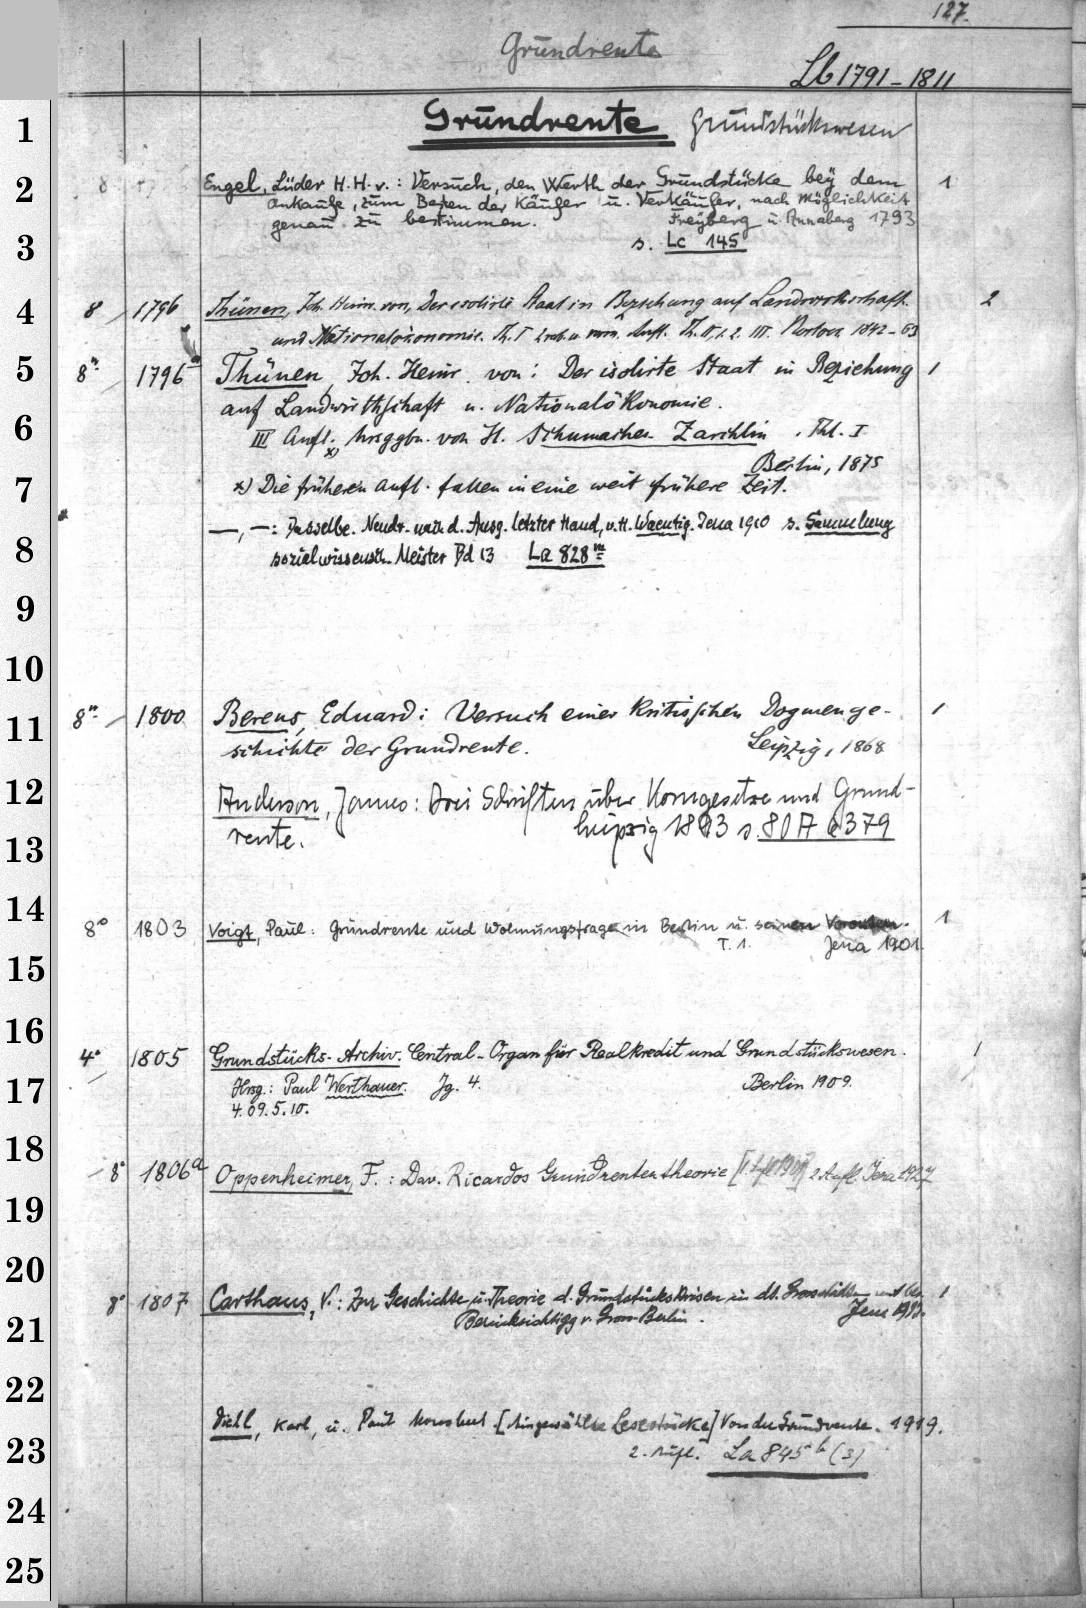 127.
Grundrente
Lb 1791-1811
1
Grundrente Grundstückswesen
2
8 Engel, Lüder H. H. v.: Versuch, den Werth der Grundstücke bey dem 1
Ankaufe, zum Besten der Käufer u. Verkäufer, nach Möglichkeit
genau zu bestimmen. Freyberg u. Annaberg 1793
3
s. Lc 145
4
8 1796 Thünen, Joh. Heinr. von, Der isolirte Staat in Beziehung auf Landwirthschaft 2
und Nationalökonomie. Th. I 2 Aufl. Th. II, 1. 2. III. Rostock 1842-63
5
8° 1796 Thünen, Joh. Heinr. von: Der isolirte Staat in Beziehung 1
auf Landwirthschaft u. Nationalökonomie.
6
III Aufl. x) hrsggbn. von H. Schumacher-Zarchlin. Thl. I
Berlin, 1875
7
x) Die früheren Aufl. fallen in eine weit frühere Zeit.
—, —: Dasselbe. Neudr. nach d. Ausg. letzter Hand, v. H. Waentig. Jena 1910 s. Sammlung
8
sozialwissensch. Meister Bd 13 La 828 m
9
10
8° 1800 Berens, Eduard: Versuch einer kritischen Dogmenge- 1
11
schichte der Grundrente. Leipzig, 1868
12
Anderson, James: Drei Schriften über Korngesetze und Grund-
13
rente. Leipzig 1893 s. 80 A 6379
14
8° 1803 Voigt, Paul: Grundrente und Wohnungsfrage in Berlin u. seinen Vororten. 1
T. 1. Jena 1901.
15
16
4° 1805 Grundstücks-Archiv. Central-Organ für Realkredit und Grundstückswesen. 1
17
Hrsg.: Paul Werthauer. Jg. 4. Berlin 1909.
4. 09. 5. 10.
18
8° 1806a Oppenheimer, F.: Dav. Ricardos Grundrententheorie 2. Aufl. Jena 1927
19
20
8° 1807 Carthaus, V.: Zur Geschichte u. Theorie d. Grundstückskrisen in dt. Grossstädten mit bes. 1
21
Berücksichtigg v. Gross-Berlin. Jena 1917.
22
Diehl, Karl, u. Paul Mombert [Ausgewählte Lesestücke] Von der Grundrente. 1919.
23
2. Aufl. La 845 b (3)
24
25